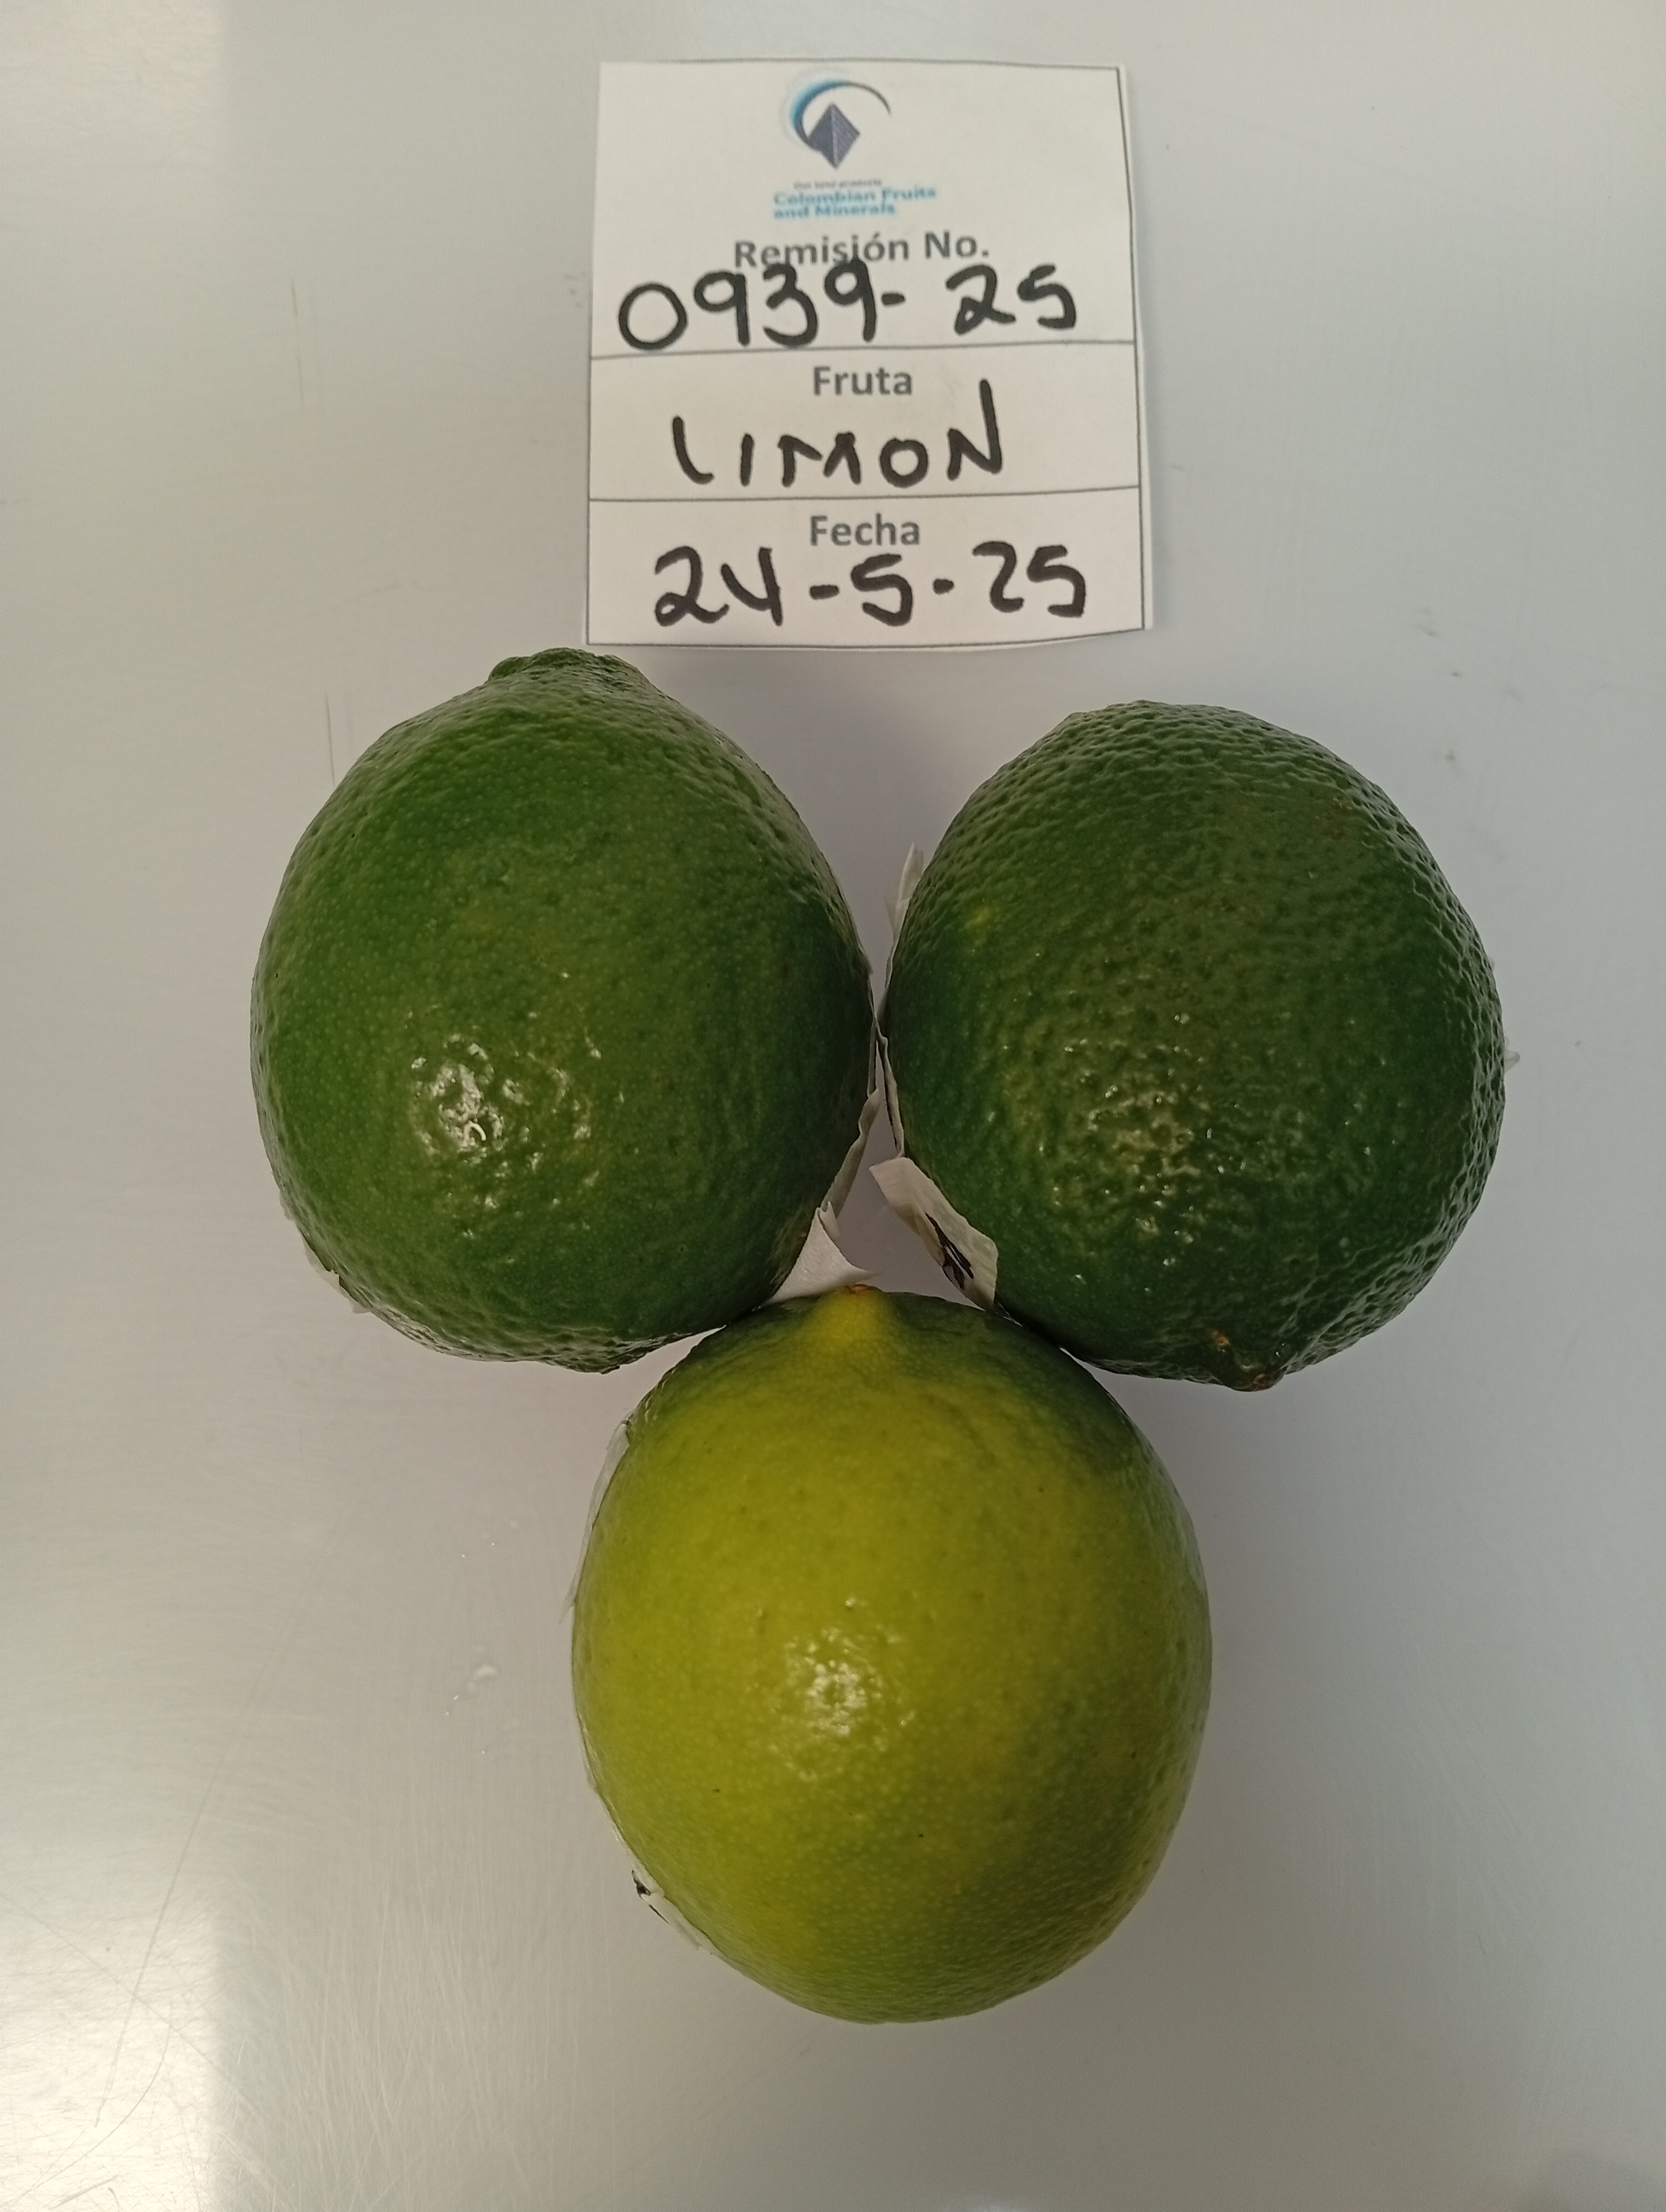 Our best products
Colombian Fruits
and Minerals
Remisión No.
0939-25
Fruta
LIMON
Fecha
24-5-25